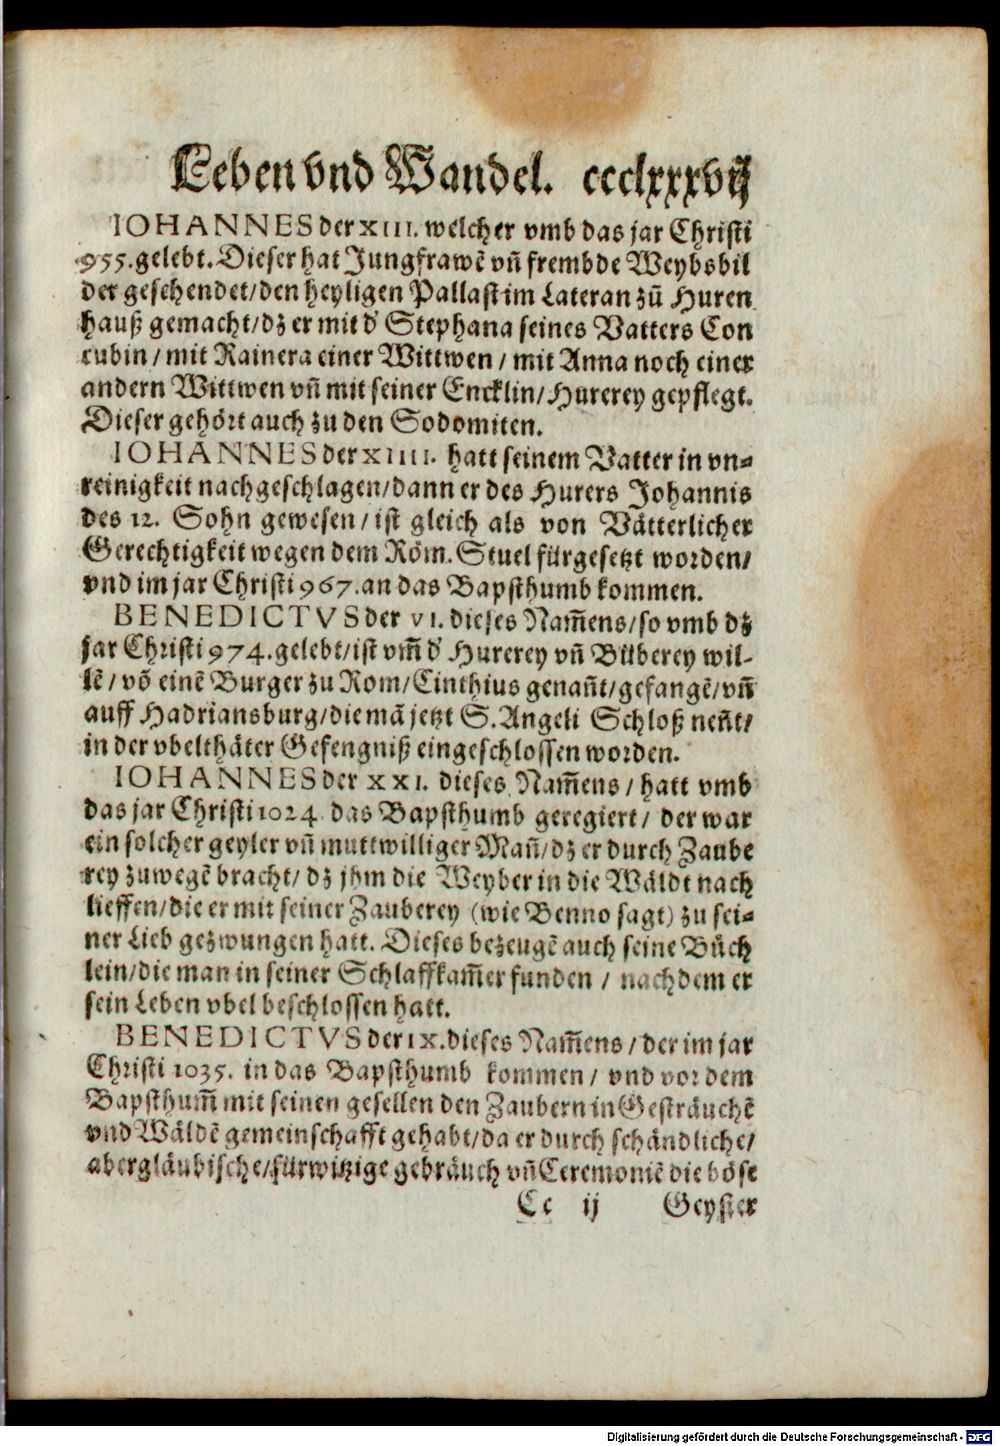 Leben vnd Wandel. ccclxxxvij
IOHANNES der XIII. welcher vmb das jar Christi
955. gelebt. Dieser hat Jungfrawẽ vñ frembde Weybsbil
der geschendet/den heyligen Pallast im Lateran zů Huren
hauß gemacht/dz er mit d' Stephana seines Vatters Con
cubin/mit Rainera einer Wittwen/mit Anna noch einer
andern Wittwen vñ mit seiner Encklin/Hurerey gepflegt.
Dieser gehört auch zu den Sodomiten.
IOHANNES der XIIII. hatt seinem Vatter in vn-
reinigkeit nachgeschlagen/dann er des Hurers Johannis
des 12. Sohn gewesen/ist gleich als von Vätterlicher
Gerechtigkeit wegen dem Röm. Stuel fürgesetzt worden/
vnd im jar Christi 967. an das Bapsthumb kommen.
BENEDICTVS der VI. dieses Nam̃ens/so vmb dz
jar Christi 974. gelebt/ist vm̃ d' Hurerey vñ Büberey wil-
lẽ/võ einẽ Burger zu Rom/Cinthius genañt/gefangẽ/vñ
auff Hadriansburg/die mã jetzt S. Angeli Schloß neñt/
in der vbelthäter Gefengniß eingeschlossen worden.
IOHANNES der XXI. dieses Nam̃ens/hatt vmb
das jar Christi 1024 das Bapsthumb geregiert/der war
ein solcher geyler vñ muttwilliger Mañ/dz er durch Zaube
rey zuwegẽ bracht/dz jhm die Weyber in die Wäldt nach
lieffen/die er mit seiner Zauberey (wie Benno sagt) zu sei-
ner Lieb gezwungen hatt. Dieses bezeugẽ auch seine Büch
lein/die man in seiner Schlaffkam̃er funden/nachdem er
sein Leben vbel beschlossen hatt.
BENEDICTVS der IX. dieses Nam̃ens/der im jar
Christi 1035. in das Bapsthumb kommen/vnd vor dem
Bapsthum̃ mit seinen gesellen den Zaubern in Gesträuchẽ
vnd Wäldẽ gemeinschafft gehabt/da er durch schändliche/
abergläubische/fürwitzige gebräuch vñ Ceremoniẽ die böse
Cc ij Geyster
Digitalisierung gefördert durch die Deutsche Forschungsgemeinschaft - DFG